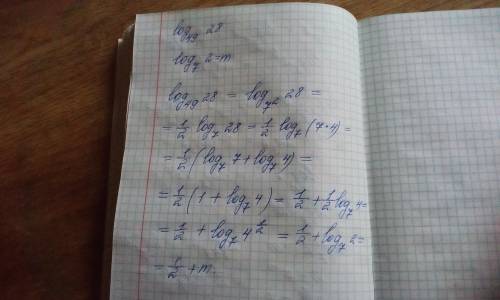 log₄₉ 28
log₇ 2 = m
log₄₉ 28 = log₇² 28 =
= 1/2 log₇ 28 = 1/2 log₇ (7·4) =
= 1/2 (log₇ 7 + log₇ 4) =
= 1/2 (1 + log₇ 4) = 1/2 + 1/2 log₇ 4 =
= 1/2 + log₇ 4^(1/2) = 1/2 + log₇ 2 =
= 1/2 + m.